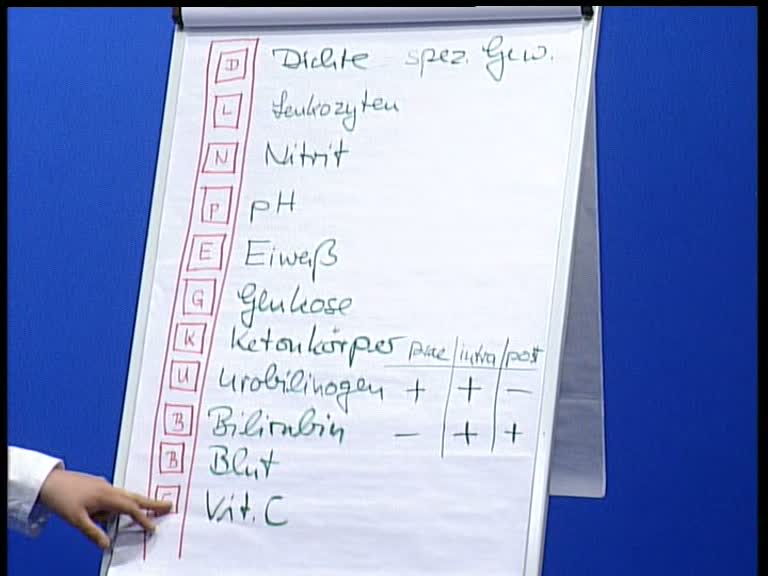 D Dichte spez. Gew.
L Leukozyten
N Nitrit
P pH
E Eiweß
G Glukose
K Ketonkörper prae intra post
U Urobilinogen + + -
B Bilirubin - + +
B Blut
Vit. C